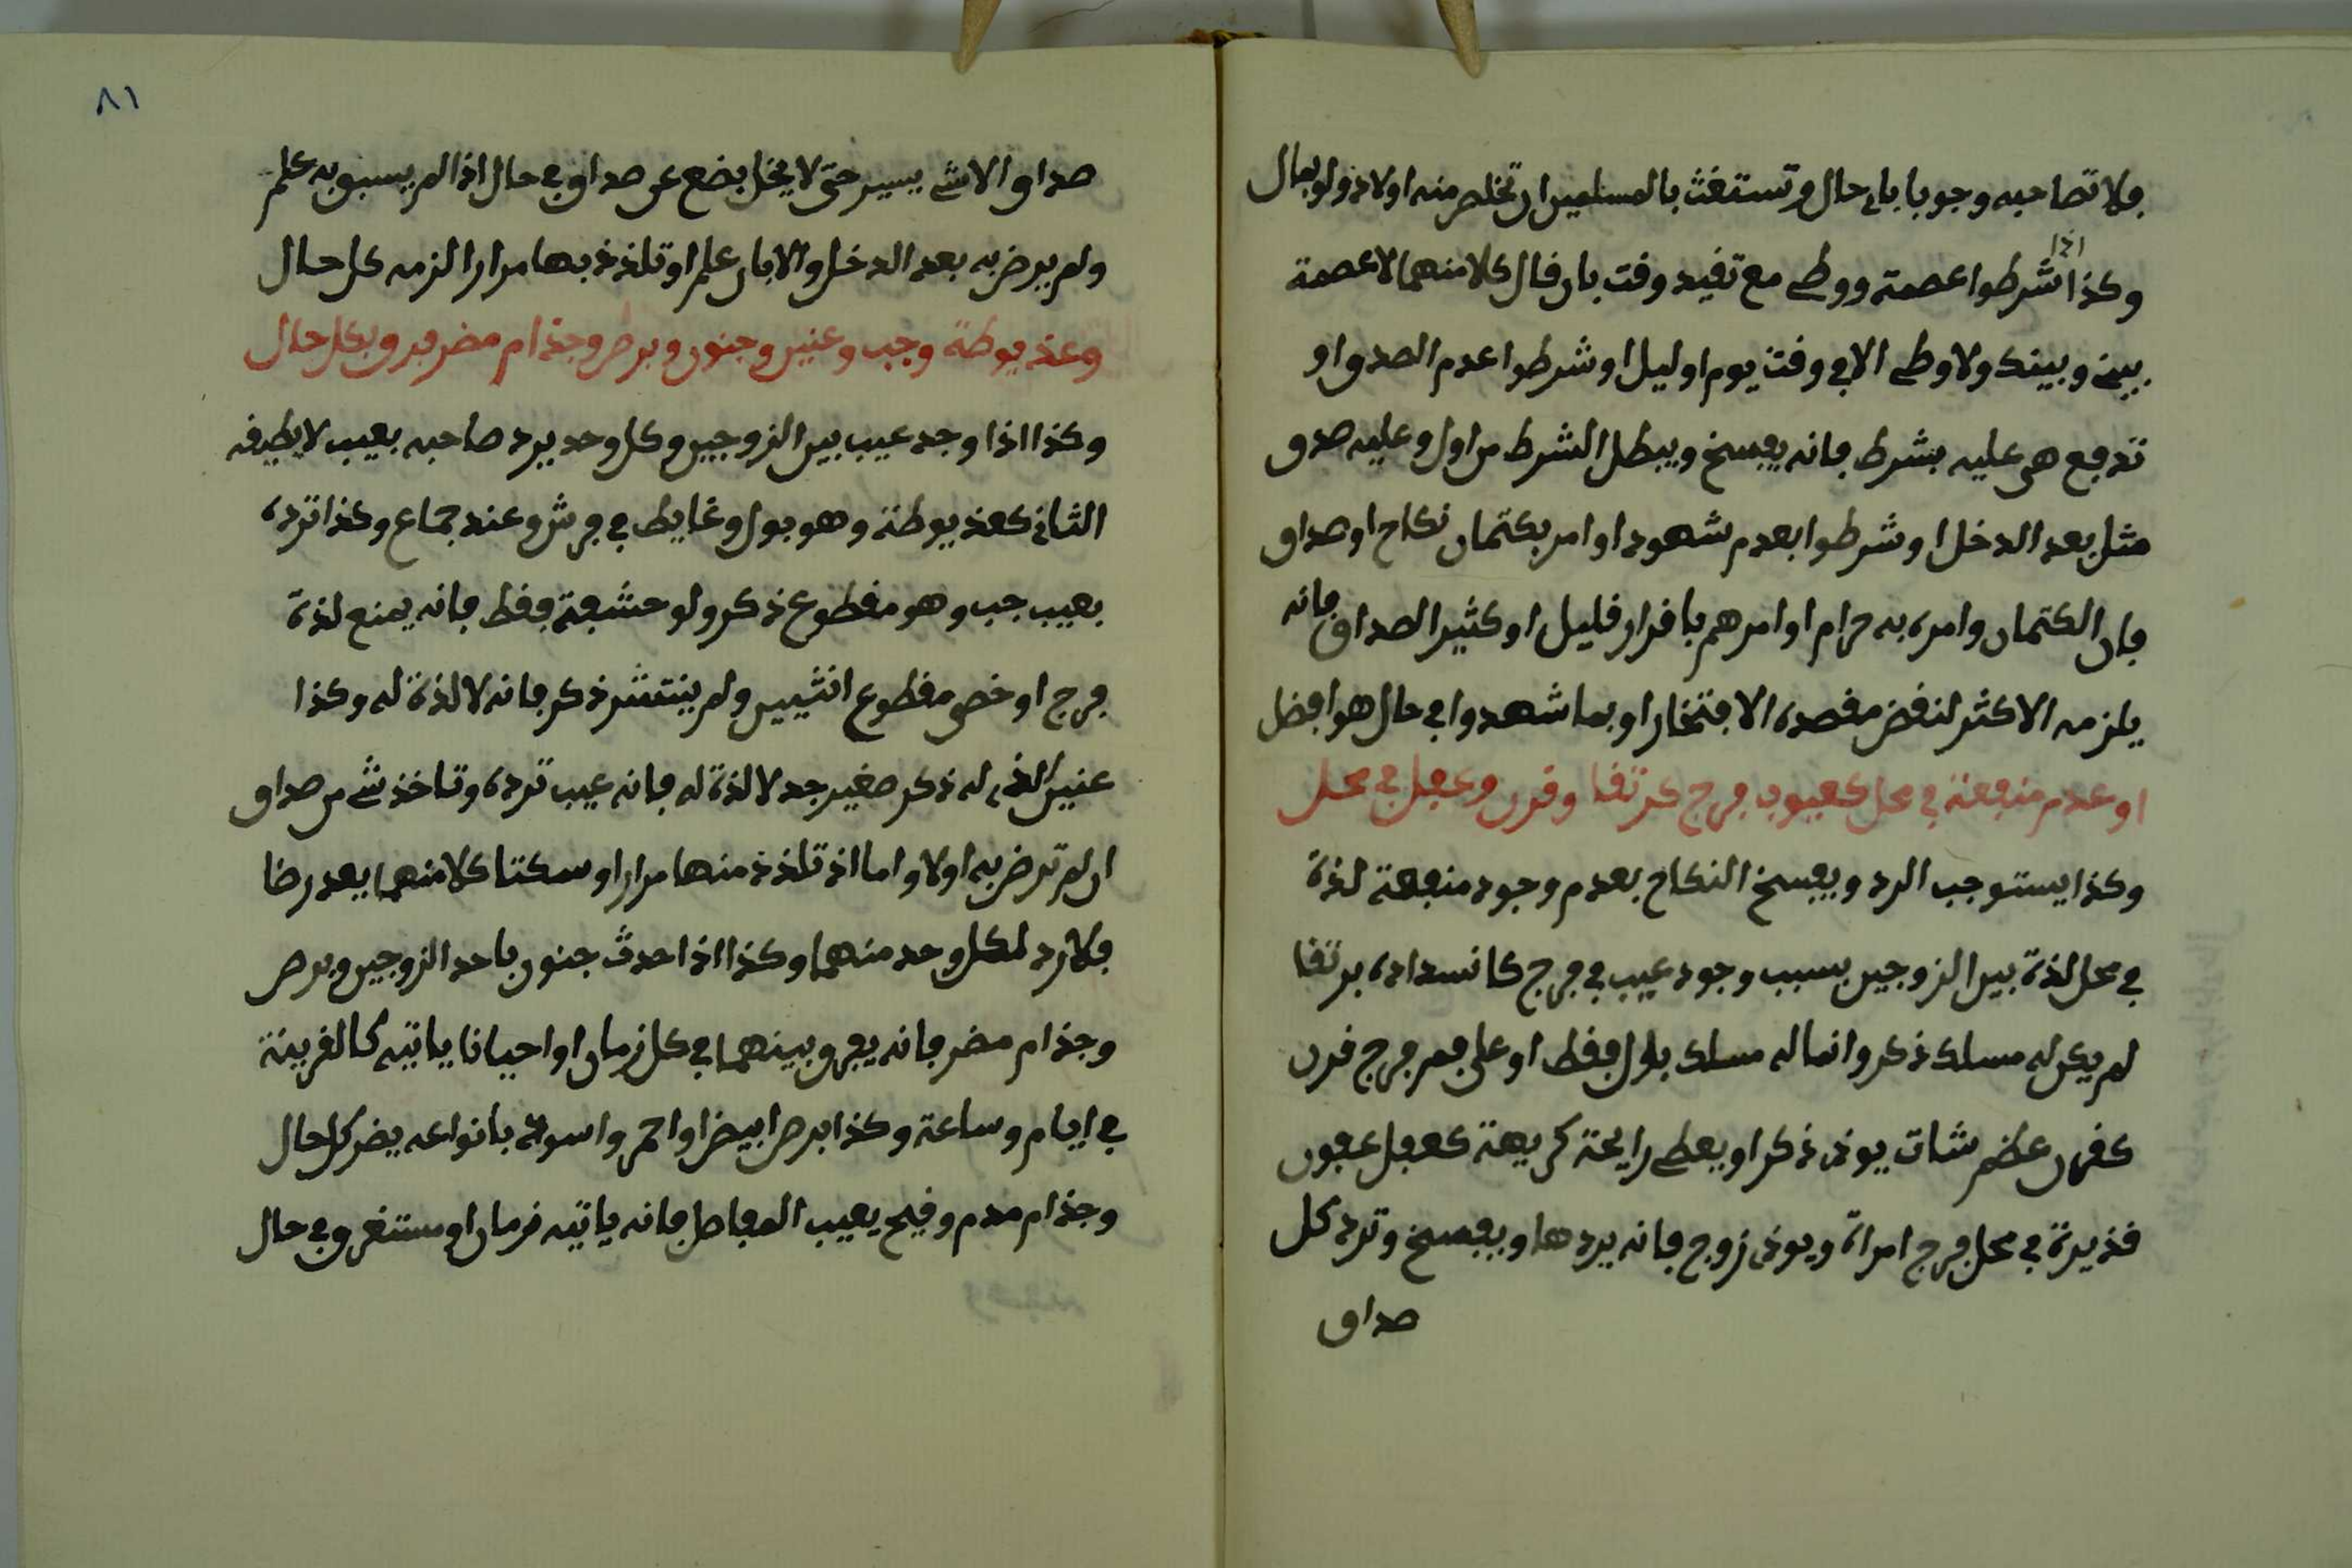 فلا تصاحبه وجوبا باي حال وتستغث بالمسلمين ان تخلص منه اولاد ولو بمال
وكذا اذا شرطوا عصمة ووطء مع تقيد وقت بان قال كلا منهما لا عصمة
بيني وبينك ولا وطء الا في وقت يوم او ليل او شرطوا عدم الصدق او
تدفع هي عليه بشرط فانه يفسخ ويبطل الشرط من اول وعليه صدق
مثل بعد الدخل او شرطوا بعدم شهود او امر بكتمان نكاح او صداق
فان الكتمان وامره به حرام او امرهم باقرار قليل او كثير الصداق فانه
يلزمه الاكثر لنقض مقصده الافتخار او بما شهدوا في حال هو افضل
او عدم منفعة في محل كعيوب فرج كرتقا وقرن وعفل في محل
وكذا يستوجب الرد ويفسخ النكاح بعدم وجود منفعة لذة
في محل لذة بين الزوجين بسبب وجود عيب في فرج كانسداده برتقا
لم يكن له مسلك ذكر وانما له مسلك بول فقط او على فم فرج قرن
كقرن عظم شات يوذي ذكر او يعطي رايحة كريهة كعفل عفون
قذيرة في محل فرج امراة ويوذي زوج فانه يردها ويفسخ وترد كل
صداق
٨١
صداق الا شيء يسير حتى لا يخل بضع عن صداق في حال اذا لم يسبق به علم
ولم يرض به بعد الدخل والا بان علم او تلذذ بها مرارا لزمه كل حال
وعذيوطة وجب وعنين وجنون وبرص وجذام مضر فرق بكل حال
وكذا اذا وجد عيب بين الزوجين وكل وحد يرد صاحبه بعيب لا يطيقه
الثاني كعذيوطة وهو بول وغايط في فرش وعند جماع وكذا ترده
بعيب جب وهو مقطوع ذكر ولو حشفة فقط فانه يمنع لذة
فرج او خصي مقطوع انثيين ولم ينتشر ذكر فانه لا لذة له وكذا
عنين الذي له ذكر صغير جد لا لذة له فانه عيب ترده وتاخذ شيء من صداق
ان لم ترض به اولا واما اذ تلذذ منها مرارا وسكتا كلا منهما يعد رضا
فلا رد لكل وحد منهما وكذا اذا احدث جنون باحد الزوجين وبرص
وجذام مضر فانه يفرق بينهما في كل زمان او احيانا ياتيه كالقرينة
في ايام وساعة وكذا برص ابيض او احمر واسود بانواعه يضر كل حال
وجذام مدم وقيح يعيب المفاصل فانه ياتيه زمان او مستغرق في حال